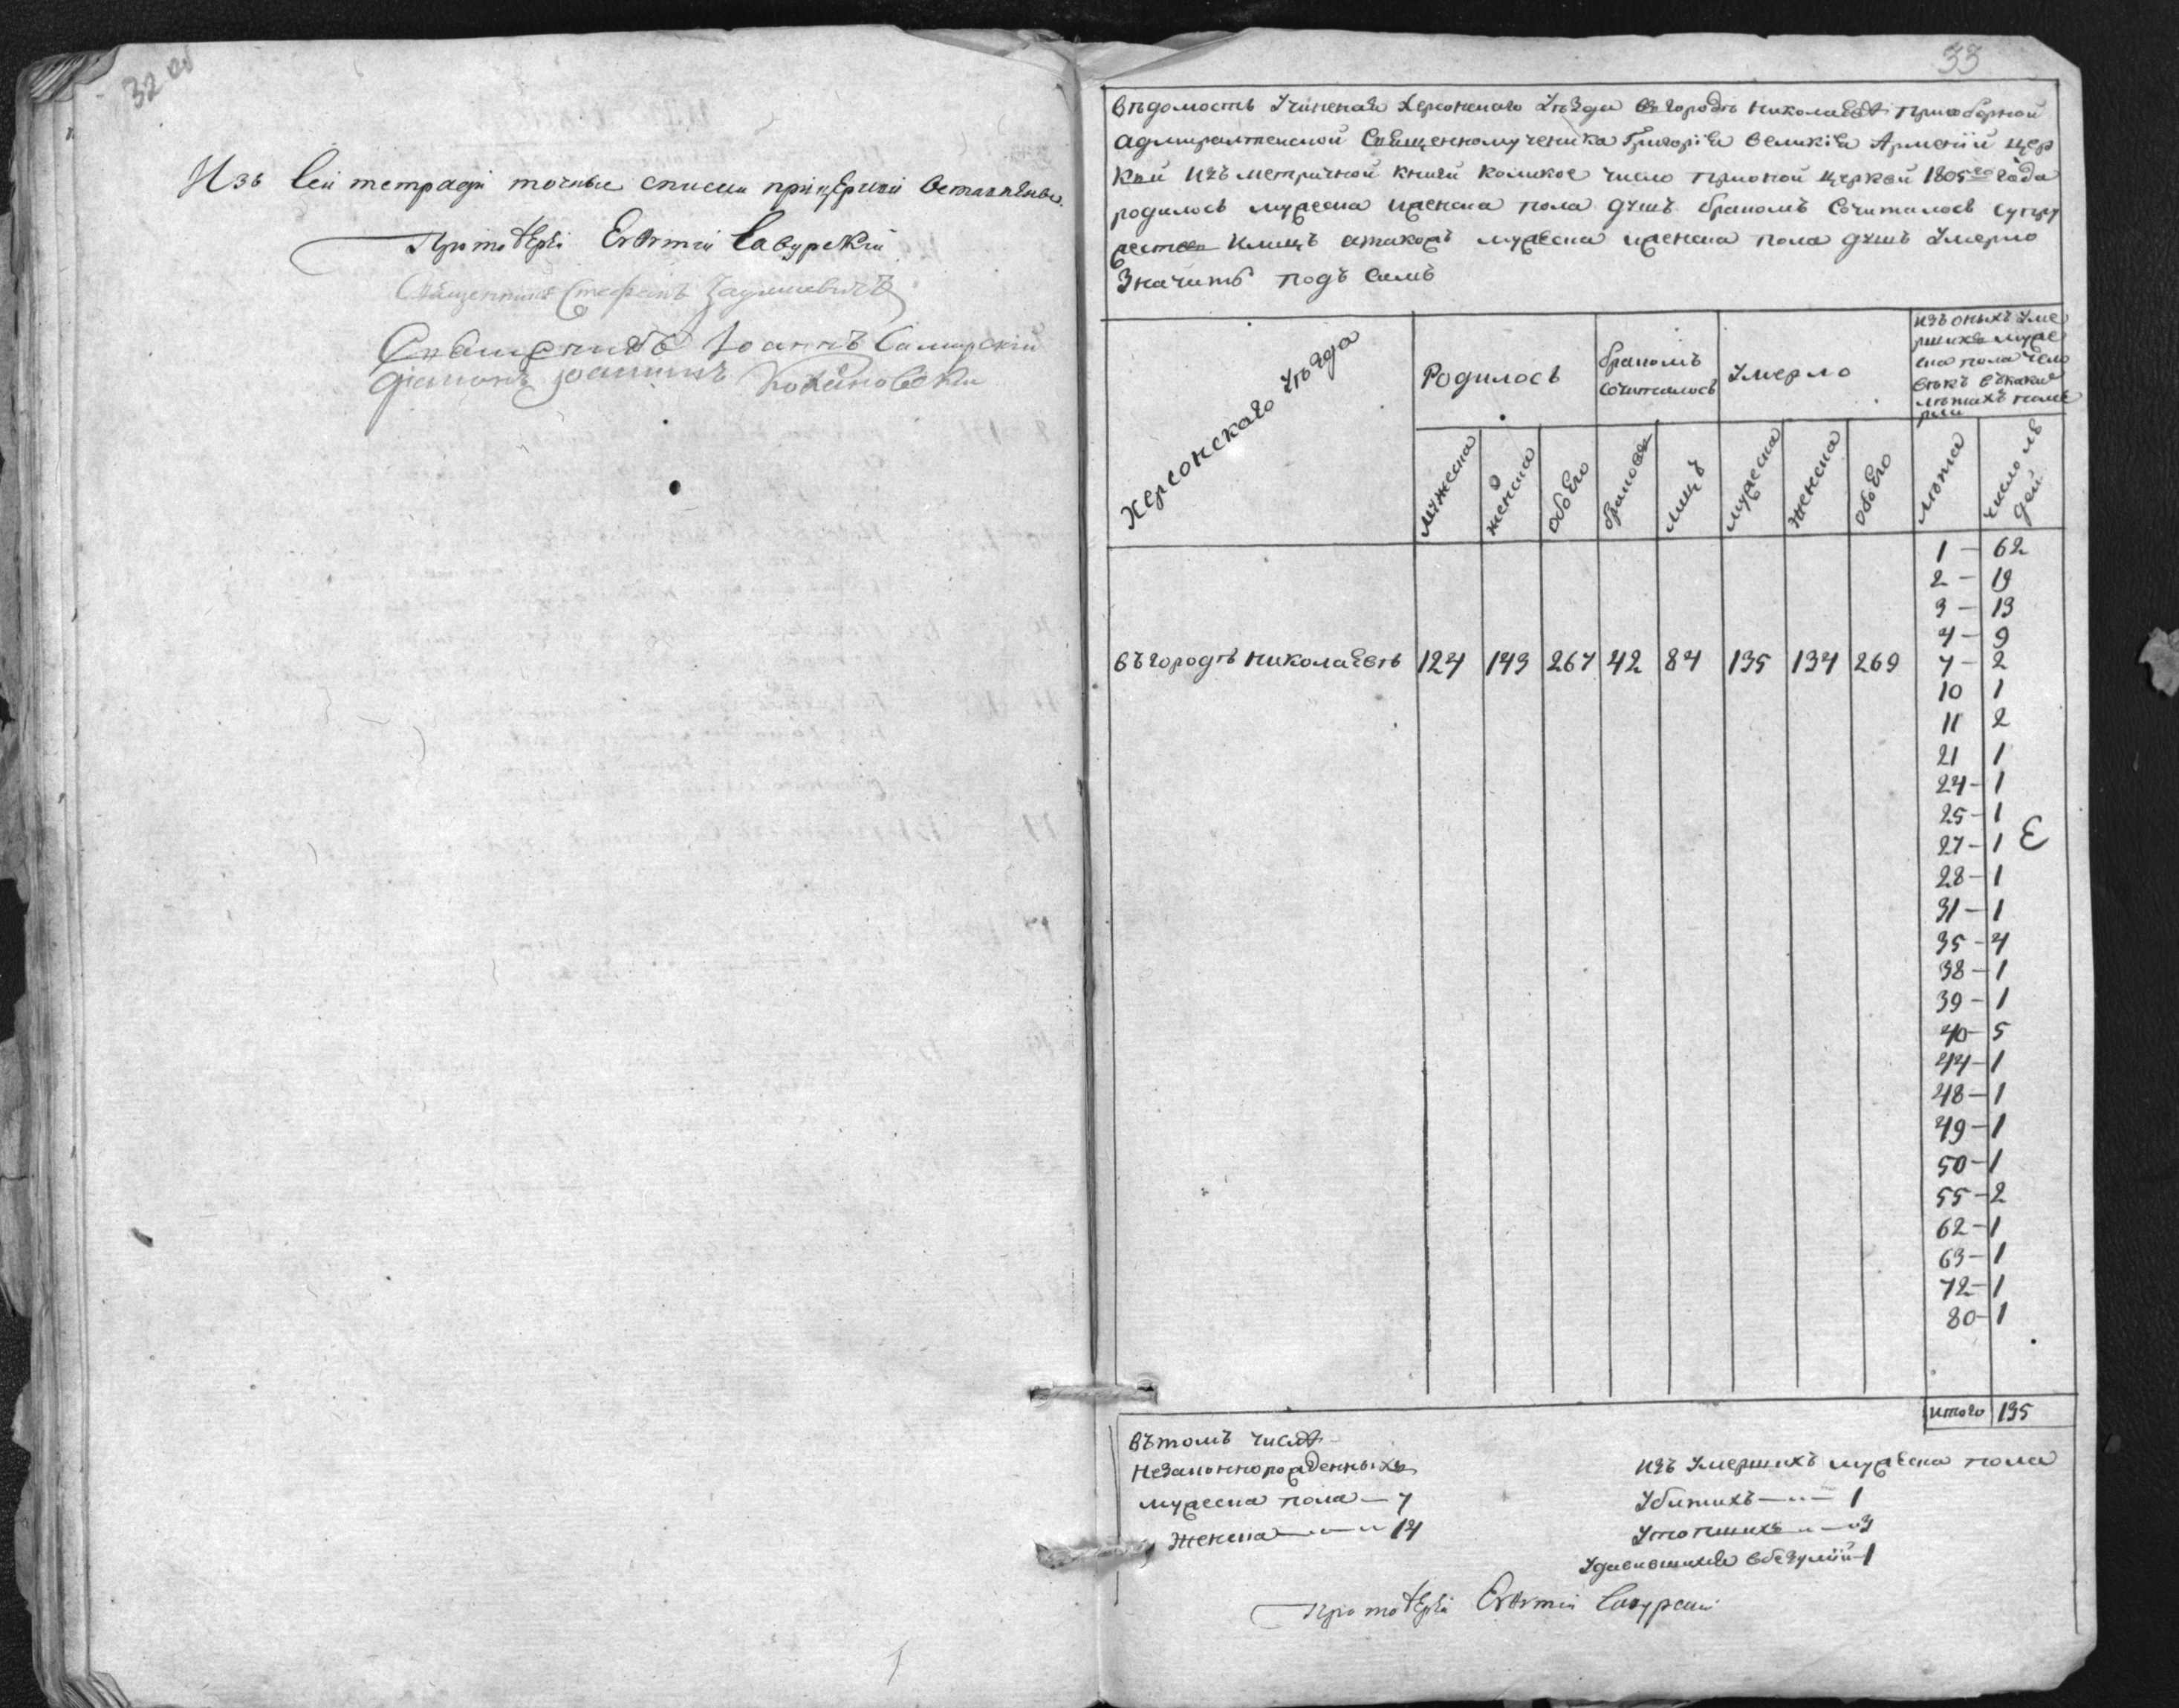 32 об
Изъ Сей тетради точные списки при церкви оставлены.
Протоіерей Евѳимій Савурскій
Священникъ Стефанъ
Священникъ Іоаннъ
діаконъ Іоаннъ Кохановскій
33
Вѣдомость Учиненая Херсонскаго Уѣзда въ городѣ Николаевѣ при соборной
адмиралтейской Священномученика Григорія великія Арменіи цер
квй изъ метричной книги коликое число при оной церкви 1805го года
родилось мужеска и женска пола душъ бракомъ сочиталось супру
жество и лицъ а также мужеска и женска пола душъ Умерло
Значитъ подъ симъ
Херсонскаго Уѣзда
Родилось
бракомъ сочиталось
Умерло
изъ оныхъ Уме
ршихъ муже
ска пола чело
вѣкъ въ какихъ
лѣтахъ поме
рли
мужеска
женска
обоего
браковъ
лицъ
мужеска
женска
обоего
лѣта
число лю
дей
въ городѣ Николаевѣ 124 143 267 42 84 135 134 269
1 – 62
2 – 19
3 – 13
4 – 9
7 – 2
10 1
11 2
21 1
24 – 1
25 – 1
27 – 1
28 – 1
31 – 1
35 – 4
38 – 1
39 – 1
40 – 5
44 – 1
48 – 1
49 – 1
50 – 1
55 – 2
62 – 1
63 – 1
72 – 1
80 – 1
итого 135
въ томъ числѣ
незаконнорожденныхъ
мужеска пола – 7
женска – 14
изъ Умершихъ мужеска пола
Убитихъ – 1
Утопшихъ – 3
Удавившихся въ безуміи – 1
Протоіерей Евѳимій Савурскій